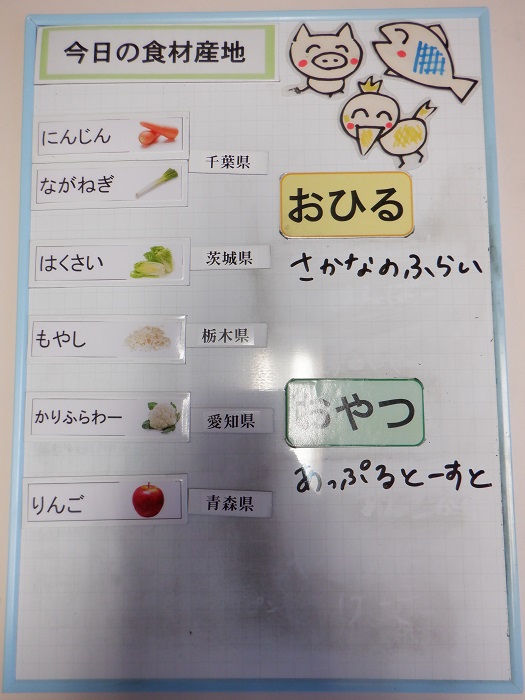 今日の食材産地
にんじん
千葉県
ながねぎ
はくさい
茨城県
もやし
栃木県
かりふらわー
愛知県
りんご
青森県
おひる
さかなのふらい
おやつ
あっぷるとーすと